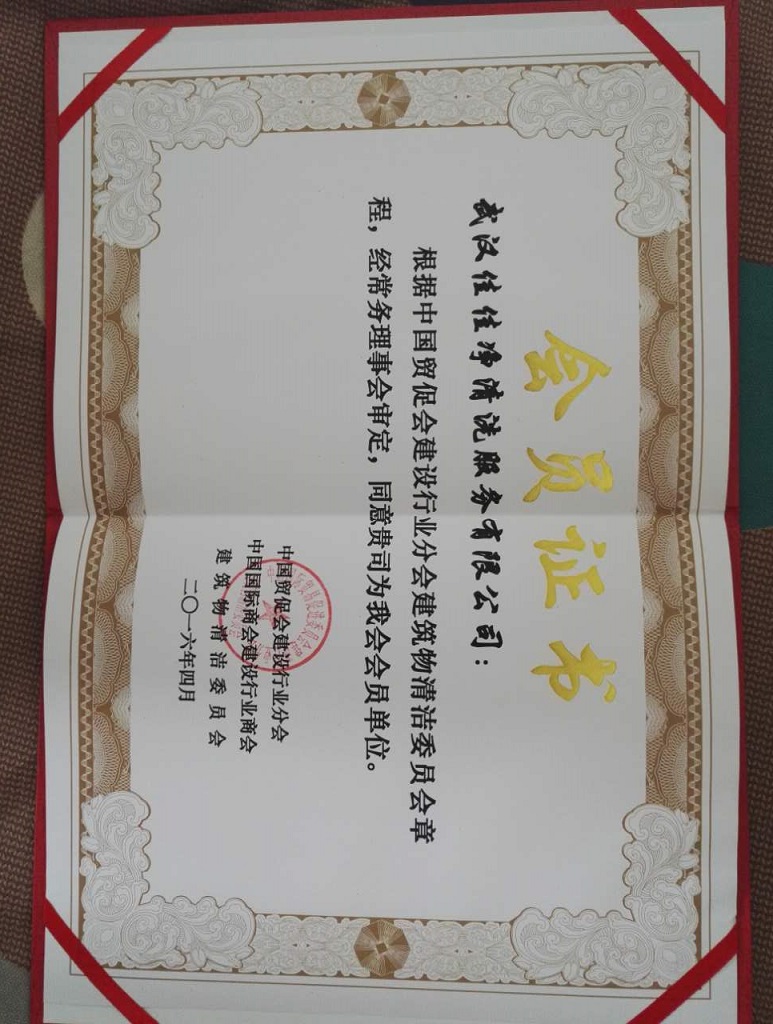 会员证书
武汉佳佳净清洗服务有限公司：
根据中国贸促会建设行业分会建筑物清洁委员会章
程，经常务理事会审定，同意贵司为我会会员单位。
中国贸促会建设行业分会
中国国际商会建设行业商会
建筑物清洁委员会
二〇一六年四月